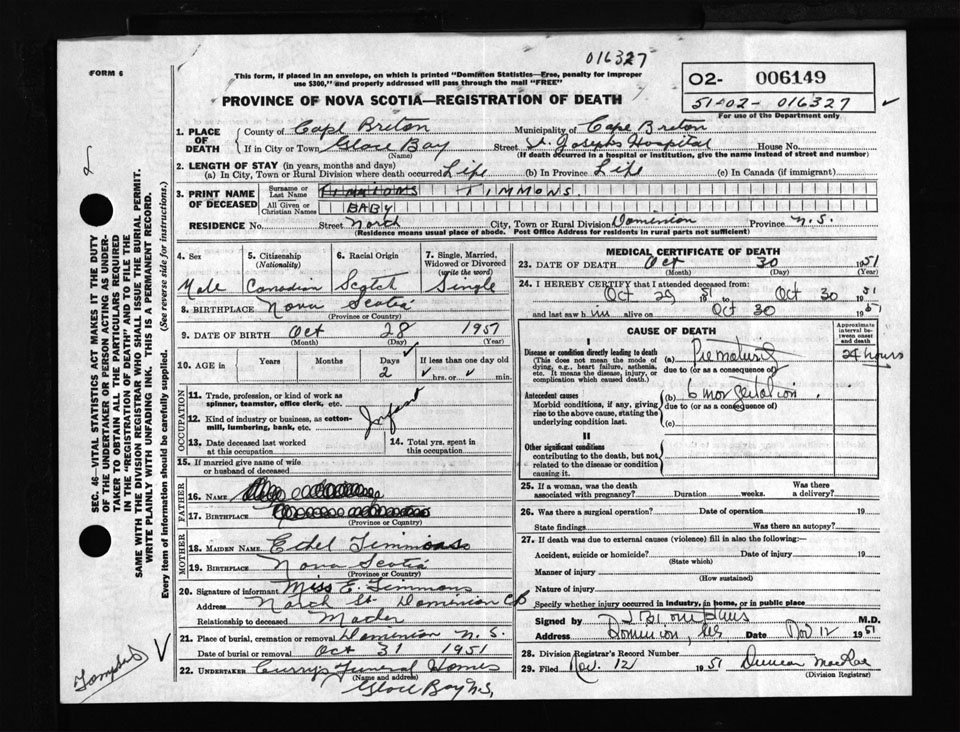 016327
FORM 6
This form, if placed in an envelope, on which is printed "Dominion Statistics—Free, penalty for improper
use $300," and properly addressed will pass through the mail "FREE"
02- 006149
51-02- 016327
For use of the Department only
PROVINCE OF NOVA SCOTIA—REGISTRATION OF DEATH
1. PLACE OF DEATH
County of Cape Breton Municipality of Cape Breton
If in City or Town Glace Bay Street St. Josephs Hospital House No.
(Name) (If death occurred in a hospital or institution, give the name instead of street and number)
2. LENGTH OF STAY (in years, months and days)
(a) In City, Town or Rural Division where death occurred Life (b) In Province Life (c) In Canada (if immigrant)
3. PRINT NAME OF DECEASED
Surname or Last Name TIMMONS.
All Given or Christian Names BABY
RESIDENCE No. Street North City, Town or Rural Division Dominion Province N.S.
(Residence means usual place of abode. Post Office Address for residents in rural parts not sufficient)
SEC. 46—VITAL STATISTICS ACT MAKES IT THE DUTY
OF THE UNDERTAKER OR PERSON ACTING AS UNDER-
TAKER TO OBTAIN ALL THE PARTICULARS REQUIRED
IN THE "REGISTRATION OF DEATH" AND TO FILE THE
SAME WITH THE DIVISION REGISTRAR WHO SHALL ISSUE THE BURIAL PERMIT.
WRITE PLAINLY WITH UNFADING INK. THIS IS A PERMANENT RECORD.
Every item of information should be carefully supplied. (See reverse side for instructions.)
4. Sex 5. Citizenship (Nationality) 6. Racial Origin 7. Single, Married, Widowed or Divorced (write the word)
Male Canadian Scotch Single
8. BIRTHPLACE Nova Scotia
(Province or Country)
9. DATE OF BIRTH Oct 28 1951
(Month) (Day) (Year)
10. AGE in Years Months Days If less than one day old
2 hrs. or min.
OCCUPATION
11. Trade, profession, or kind of work as spinner, teamster, office clerk, etc.
Infant
12. Kind of industry or business, as cotton-mill, lumbering, bank, etc.
13. Date deceased last worked at this occupation
14. Total yrs. spent in this occupation
15. If married give name of wife or husband of deceased
FATHER
16. NAME
17. BIRTHPLACE
(Province or Country)
MOTHER
18. MAIDEN NAME Ethel Timmons
19. BIRTHPLACE Nova Scotia
(Province or Country)
20. Signature of informant Miss E. Timmons
Address North St Dominion CB
Relationship to deceased Mother
21. Place of burial, cremation or removal Dominion N.S.
Date of burial or removal Oct 31 1951
22. UNDERTAKER Curry's Funeral Homes
(Name and address)
Glace Bay N.S.
MEDICAL CERTIFICATE OF DEATH
23. DATE OF DEATH Oct 30 1951
(Month) (Day) (Year)
24. I HEREBY CERTIFY that I attended deceased from:
Oct 29 1951 to Oct 30 1951
and last saw him alive on Oct 30 1951
CAUSE OF DEATH
Approximate interval between onset and death
I
Disease or condition directly leading to death
(This does not mean the mode of dying, e.g., heart failure, asthenia, etc. It means the disease, injury, or complication which caused death.)
(a) Prematurity 24 hours
due to (or as a consequence of)
Antecedent causes
Morbid conditions, if any, giving rise to the above cause, stating the underlying condition last.
(b) 6 mos gestation.
due to (or as a consequence of)
(c)
II
Other significant conditions
contributing to the death, but not related to the disease or condition causing it.
25. If a woman, was the death associated with pregnancy? Duration weeks. Was there a delivery?
26. Was there a surgical operation? Date of operation 19
State findings Was there an autopsy?
27. If death was due to external causes (violence) fill in also the following:—
Accident, suicide or homicide? Date of injury 19
(State which)
Manner of injury
(How sustained)
Nature of injury
Specify whether injury occurred in industry, in home, or in public place
Signed by M.D.
Address Dominion, Date Nov 12 1951
28. Division Registrar's Record Number
29. Filed Nov. 12 1951 Duncan MacRae
(Division Registrar)